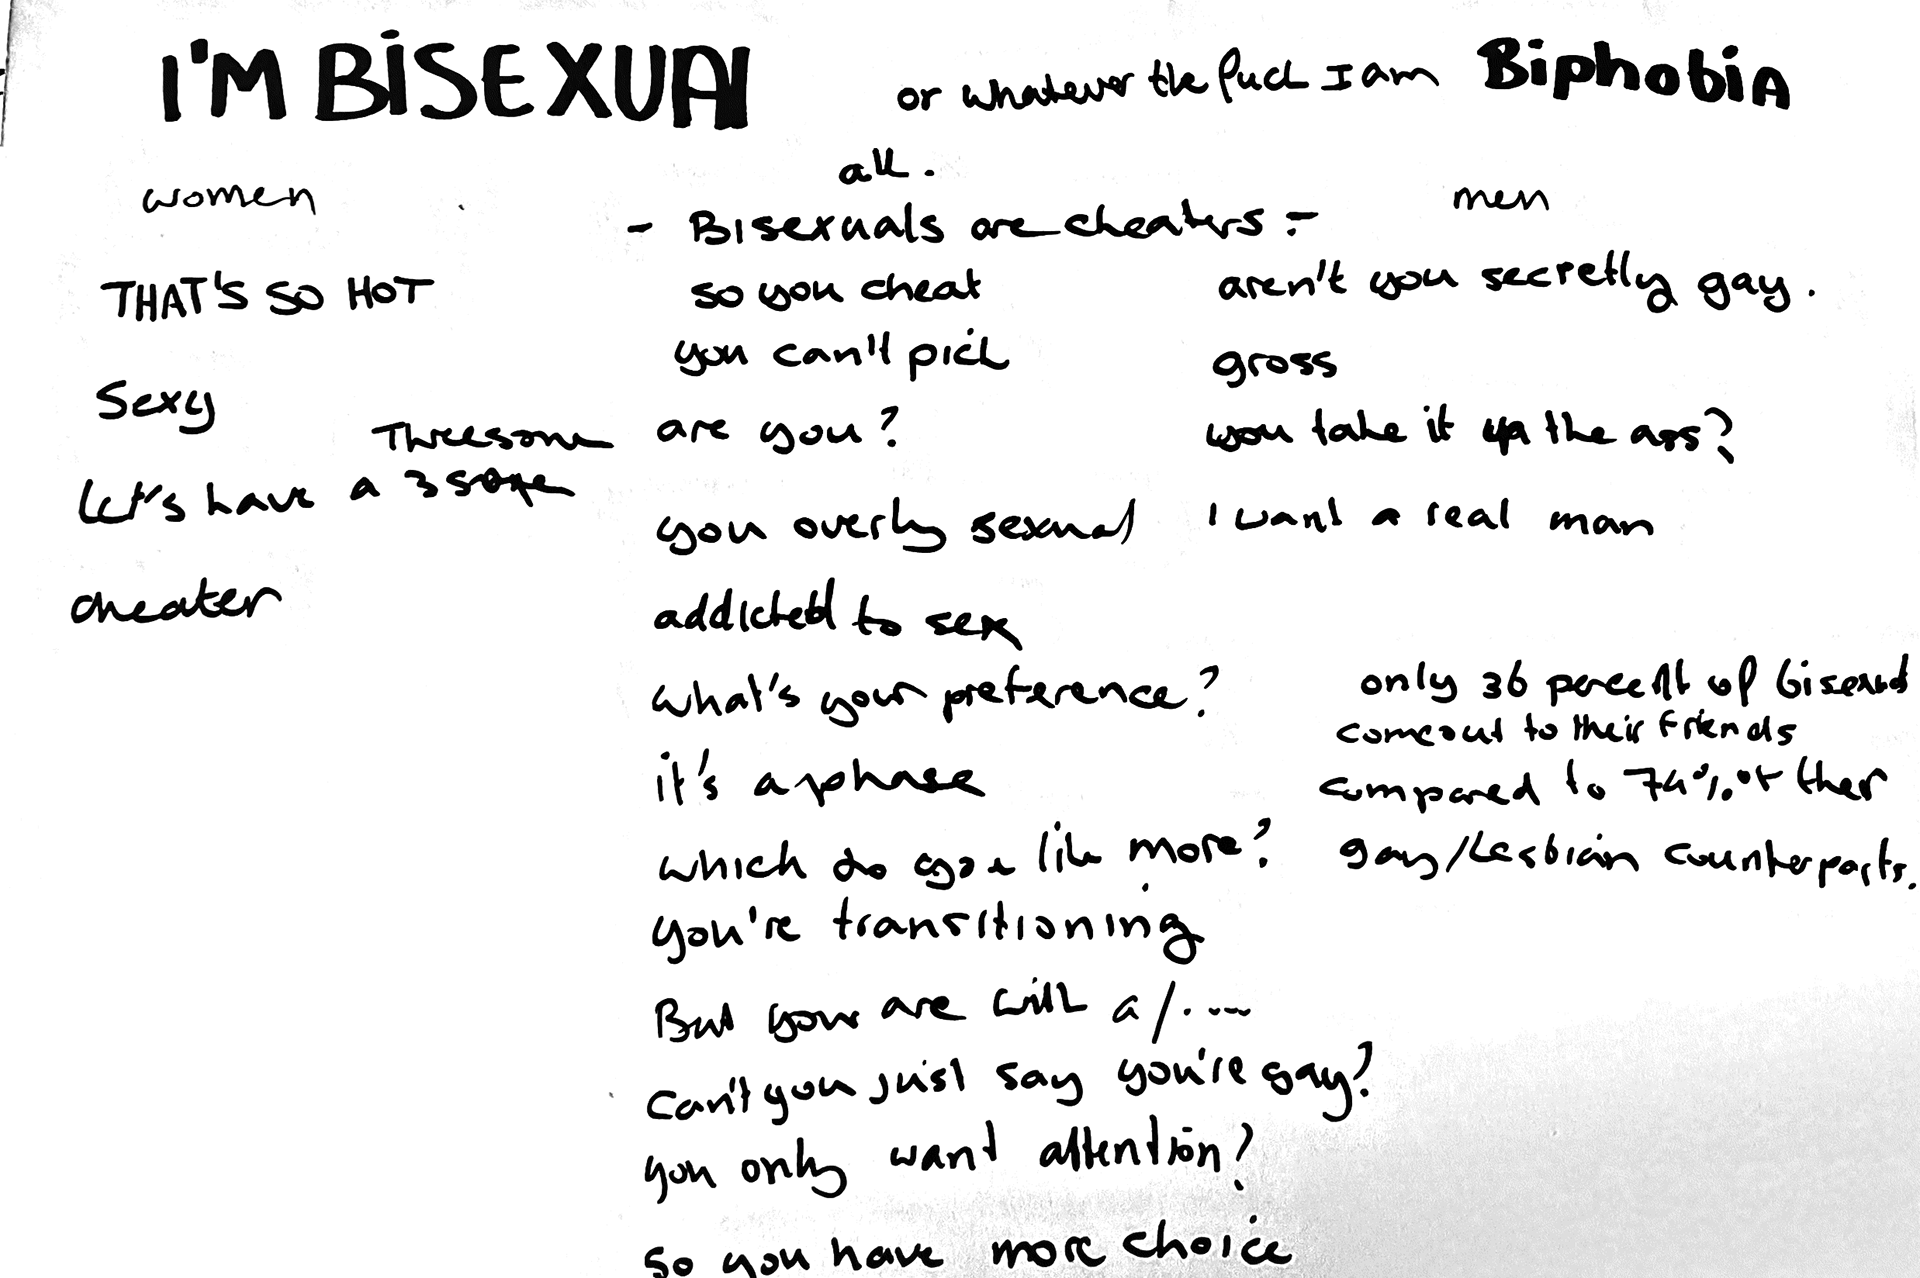 I'M BISEXUAl
or whatever the fuck I am
BiphobiA
women
THAT'S SO HOT
Sexy
Threesome
Let's have a 3some
cheater
all.
- Bisexuals are cheaters :-
so you cheat
you can't pick
are you?
you overly sexual
addicted to sex
what's your preference?
it's a phase
which do you like more?
you're transitioning
But your are with a /.---
Can't you just say you're gay?
you only want attention?
so you have more choice
men
aren't you secretly gay.
gross
you take it up the ass?
I want a real man
only 36 percent of bisexual
comeout to their friends
compared to 74% of ther
gay/Lesbian counterparts.